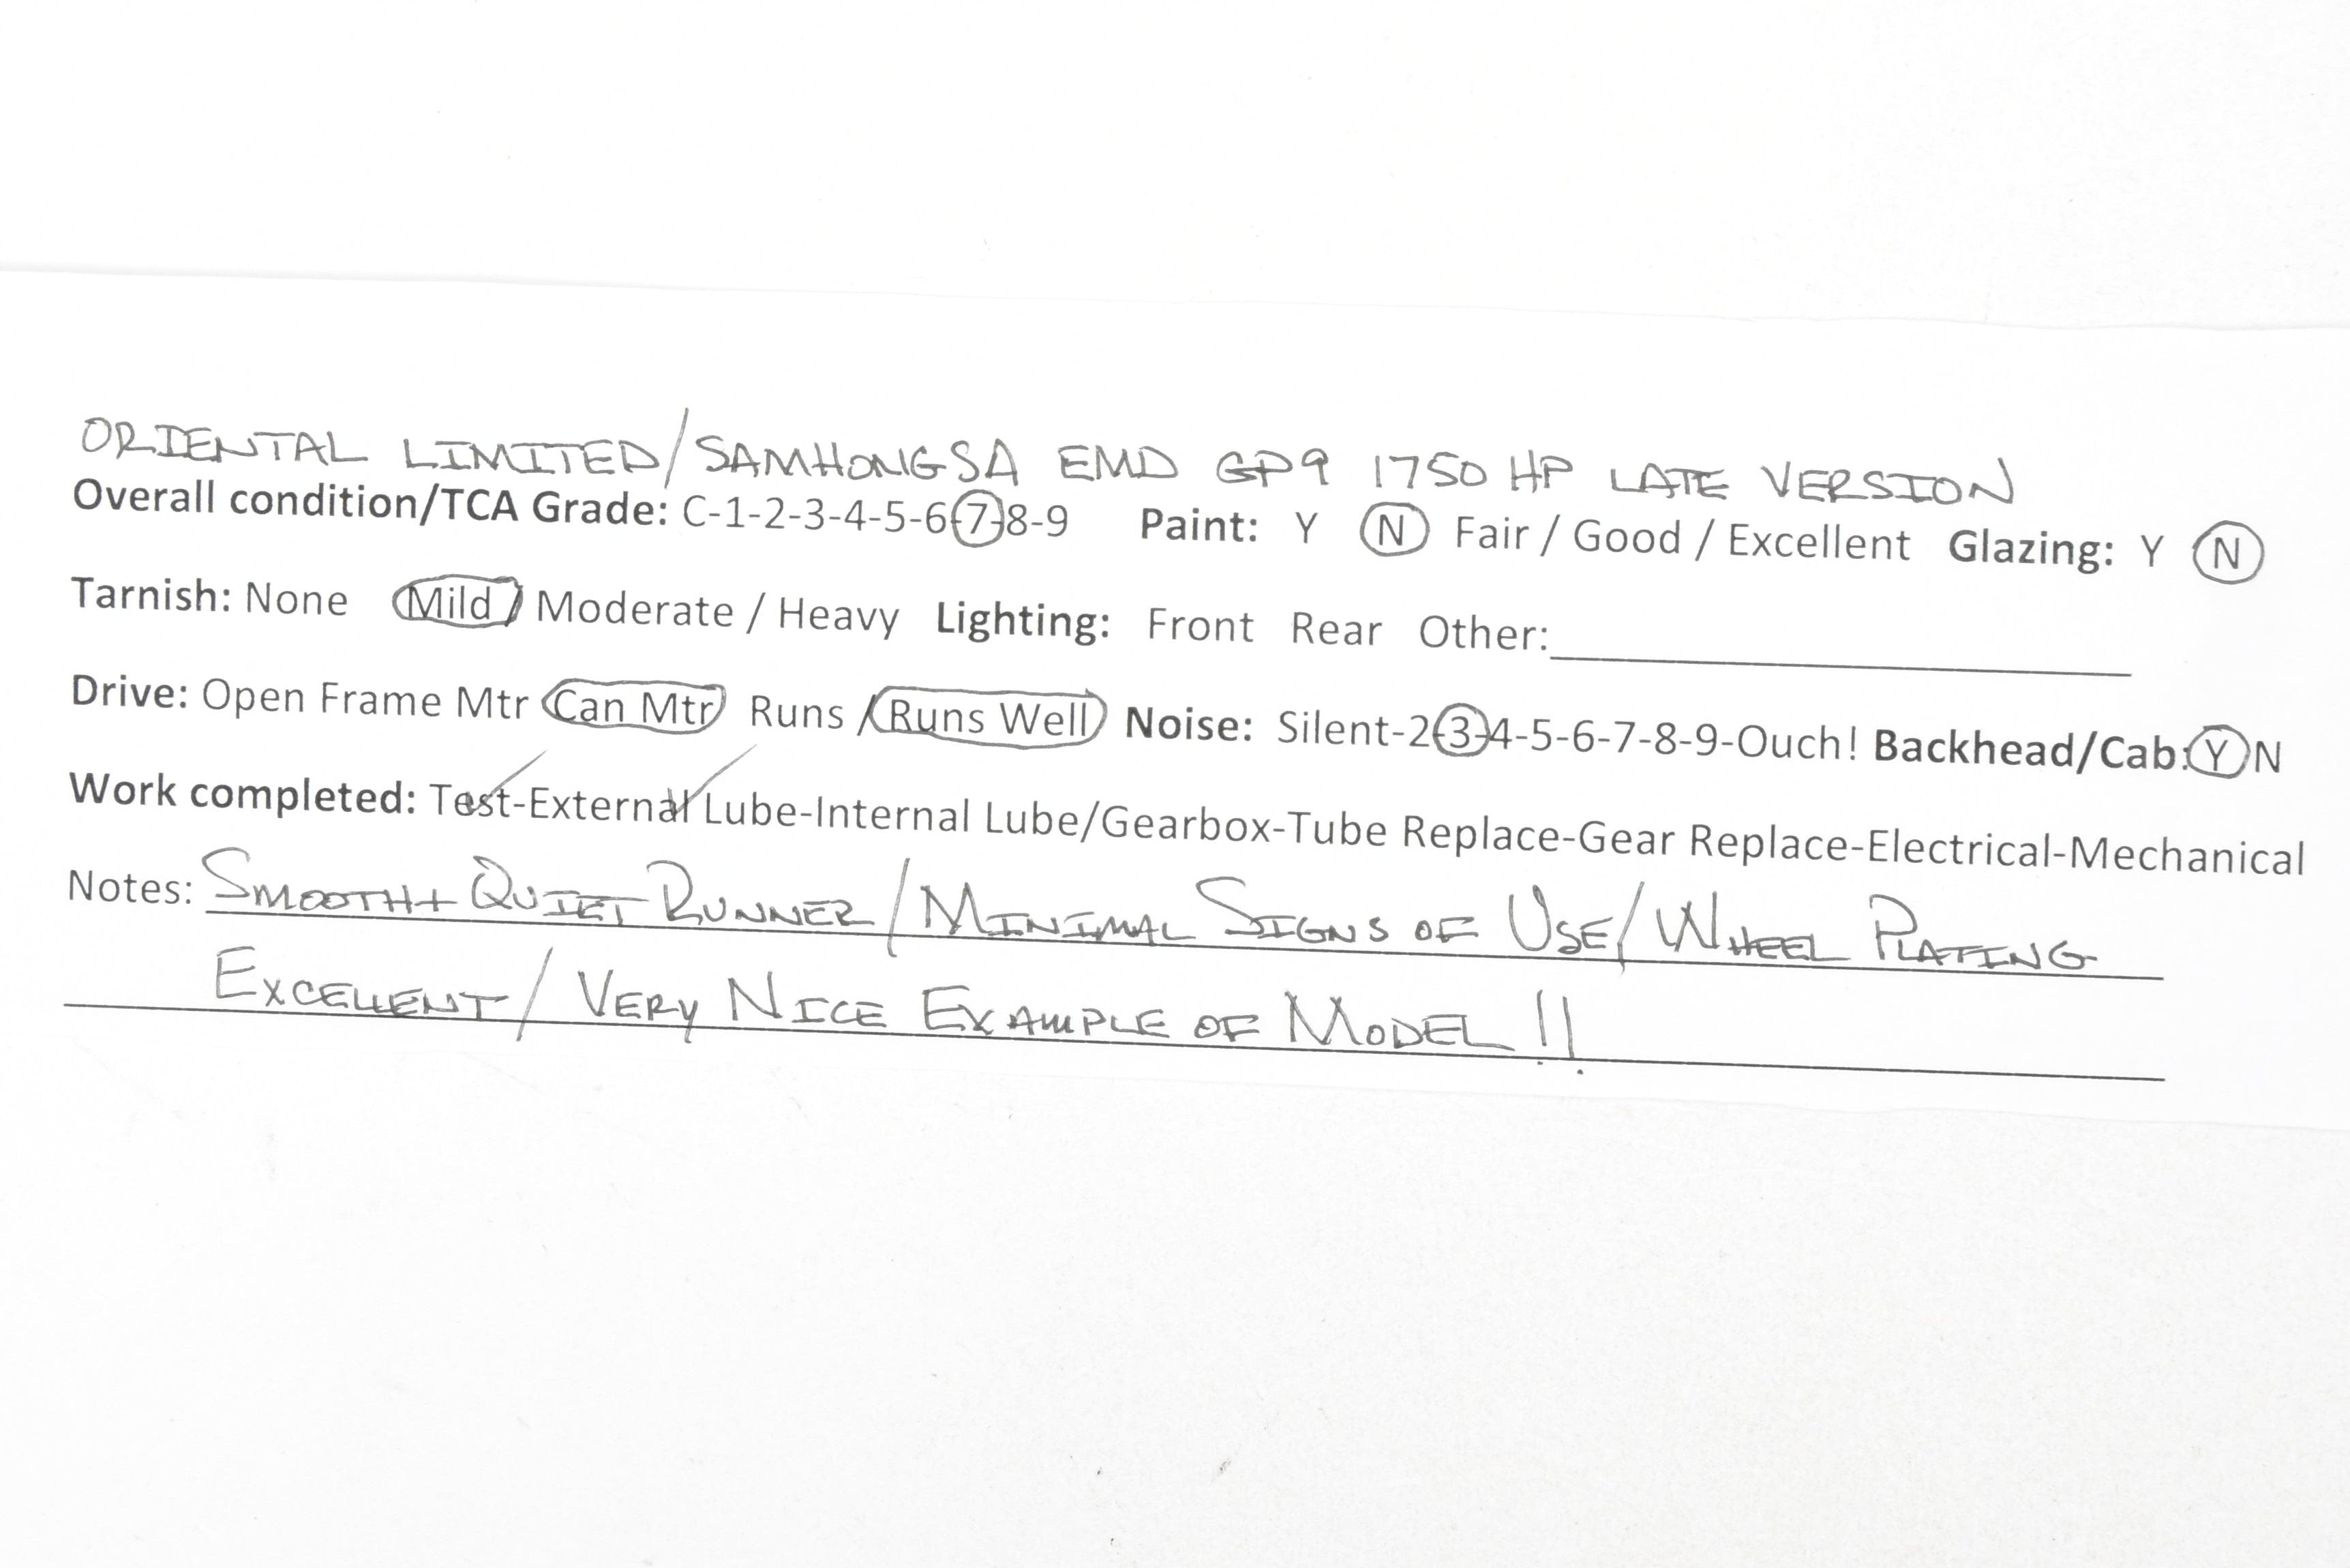 ORIENTAL LIMITED/SAMHONGSA EMD GP9 1750 HP LATE VERSION
Overall condition/TCA Grade: C-1-2-3-4-5-6-7-8-9 Paint: Y N Fair / Good / Excellent Glazing: Y N
Tarnish: None Mild / Moderate / Heavy Lighting: Front Rear Other:
Drive: Open Frame Mtr Can Mtr Runs / Runs Well Noise: Silent-2-3-4-5-6-7-8-9-Ouch! Backhead/Cab: Y N
Work completed: Test-External Lube-Internal Lube/Gearbox-Tube Replace-Gear Replace-Electrical-Mechanical
Notes: SMOOTH + QUIET RUNNER / MINIMAL SIGNS OF USE / WHEEL PLATING
EXCELLENT / VERY NICE EXAMPLE OF MODEL !!